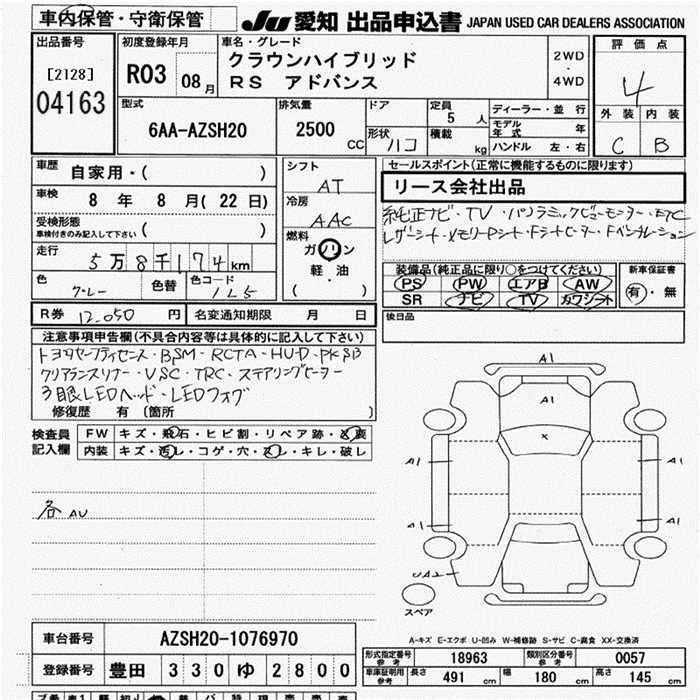 車内保管・守衛保管
JU 愛知 出品申込書 JAPAN USED CAR DEALERS ASSOCIATION
出品番号
[2128]
04163
初度登録年月
R03 08月
車名・グレード
クラウンハイブリッド
RS アドバンス
2WD
・
4WD
評価点
4
外装 内装
C B
型式
6AA-AZSH20
排気量
2500 CC
ドア
形状 ハコ
定員
5 人
積載 kg
ディーラー・並行
モデル年式 年
ハンドル 左・右
車歴 自家用・( )
車検 8 年 8 月( 22 日)
受検形態
車検付きのみ記入して下さい ( )
走行 5万8千174km
色 グレー 色替 色コード 1L5
シフト
AT
冷房
AAC
燃料
ガソリン
軽・油
( )
セールスポイント(正常に機能するものに限ります)
リース会社出品
純正ナビ・TV・パノラミックビューモニター・ETC
レザーシート・メモリーPシート・Fシートヒーター・Fベンチレーション
装備品(純正品に限り○をつけてください)
PS PW エアB AW
SR ナビ TV カワシート
新車保証書
有・無
R券 12.050 円 名変通知期限 月 日
後日品
注意事項申告欄(不具合内容等は具体的に記入して下さい)
トヨタセーフティセンス・BSM・RCTA・HUD・PKSB
クリアランスソナー・VSC・TRC・ステアリングヒーター
3眼LEDヘッド・LEDフォグ
修復歴 有 [箇所 ]
検査員記入欄
FW キズ・飛石・ヒビ割・リペア跡・交要
内装 キズ・汚レ・コゲ・穴・スレ・キレ・破レ
各AU
A1
A1
x
A1 A1
A1 A1
UA2
スペア
A-キズ E-エクボ U-凹み W-補修跡 S-サビ C-腐食 XX-交換済
車台番号 AZSH20-1076970
登録番号 豊田 330 ゆ 2800
形式指定番号 参考 18963 類別区分番号 参考 0057
車庫証明用 参考 長さ 491 cm 幅 180 cm 高さ 145 cm